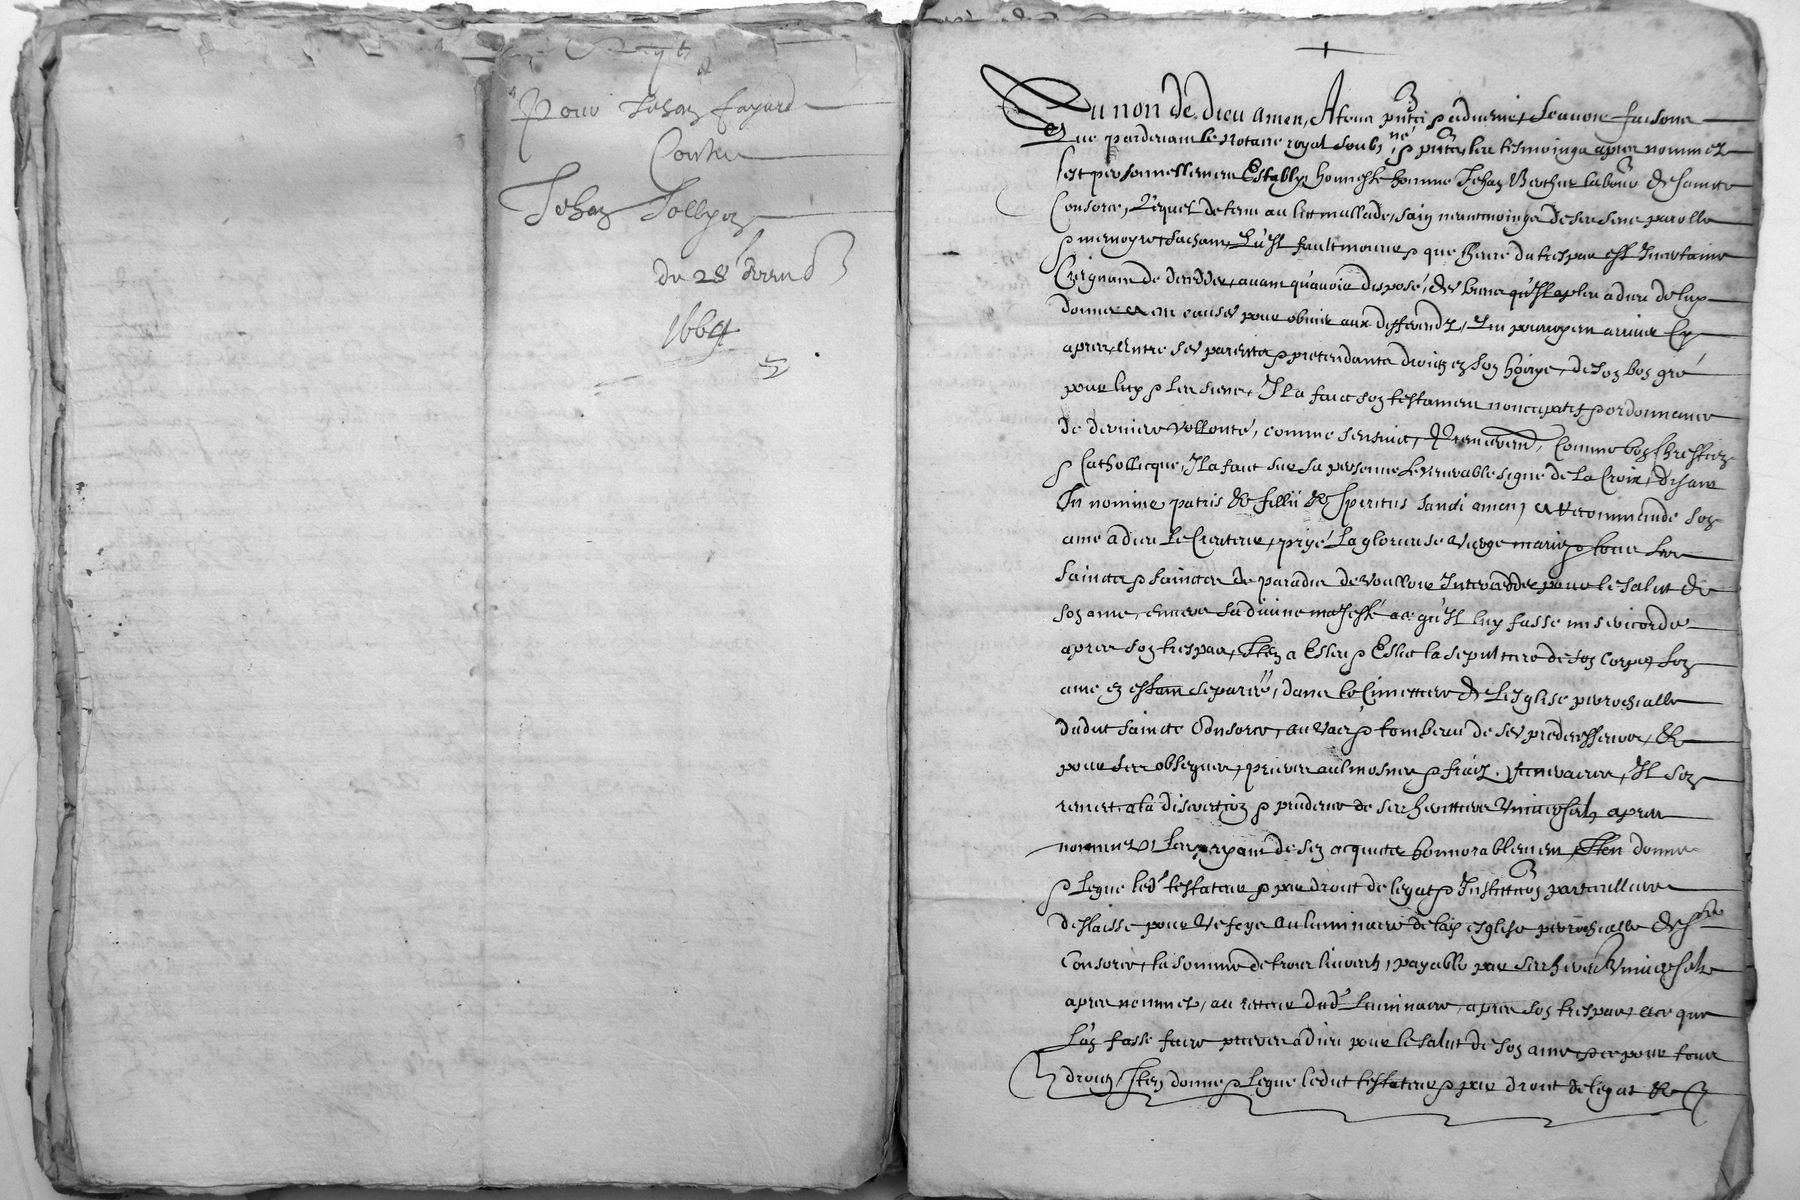 Pour Jehan fayard
Contre
Jehan Jollyon
du 28
1664
Du non de dieu amen, A tous pnts et advenir, scavoir faisons
Que pardevant le notaire royal soubné, et pnts les tesmoings apres nommez
s'est personnellement Estably honneste homme Jehan Berthier labour de saincte
Consorce, Lequel detenu au lict mallade, sain neantmoings de ses sens parolle
et memoyre, sachant qu'Il fault mourir et que l'heure du trespas est Incertaine
Creignant de decedder, avant qu'avoir disposé, des biens qu'Il a pleu a dieu de luy
donner et pour obvier aux differendz, qu'en pourroyent arriver Cy
apres, Entre ses parents et pretendants droictz en son hoirye, de son bon gré
pour luy et les siens, Il a faict son testament noncupatif et ordonnance
de derniere vollonté, comme s'ensuict, Premierement, Comme bon Chrestien
et Catholicque, Il a faict sur sa personne le venerable signe de la Croix, disant
In nomine patris & fillii & speritus sancti amen, et recommandé son
ame a dieu le Createur, pryé La glorieuse vierge marie, et tous les
saincts et sainctes de paradis de voulloir Intercedder pour le salut de
son ame, envers sa divine majesté ace qu'Il luy fasse misericorde
apres son trespas, Item a Esleu et Eslict la sepulture de son corps, son
ame en estant separée, dans le Cimettiere de L'esglise parrochialle
dudict saincte Consorce, au vas et tombeau de ses predecesseurs, &
pour ses obseques, prieres aulmosnes et fraictz funeraires, Il s'en
remect a la discretion et prudence de ses herittiers universelz apres
nommez, Les priant de s'en acquicter honnorablement, Item donne
et legue led testateur et par droict de legat et Institution particulliere
deslaisse pour une foys au luminaire de lad esglise parrochialle de ste
Consorce, la somme de trois livres, payable par ses heritiers universelz
apres nommes, au recteur dud luminaire, apres son trespas, ace que
L'on fasse faire prieres a dieu pour le salut de son ame et ce pour tous
droictz, Item donne et legue ledict testateur et par droict de legat &